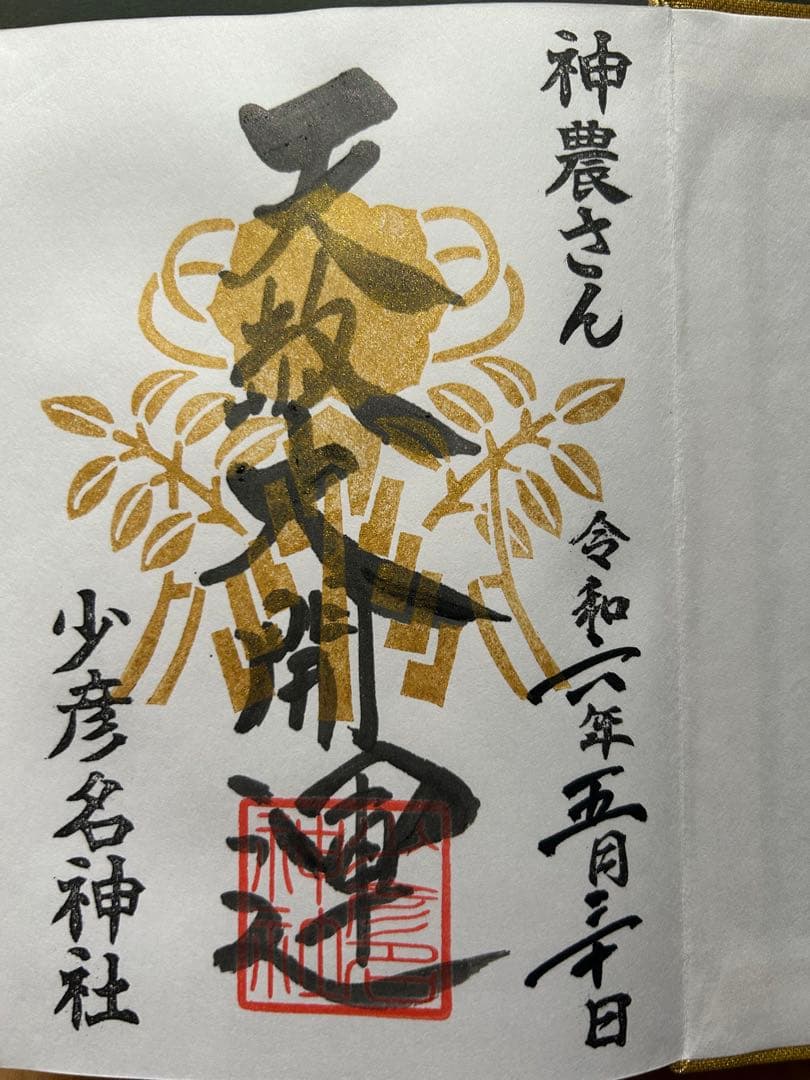 神農さん
令和六年五月三十日
天赦大開運
少彦名神社
少彦名
神社